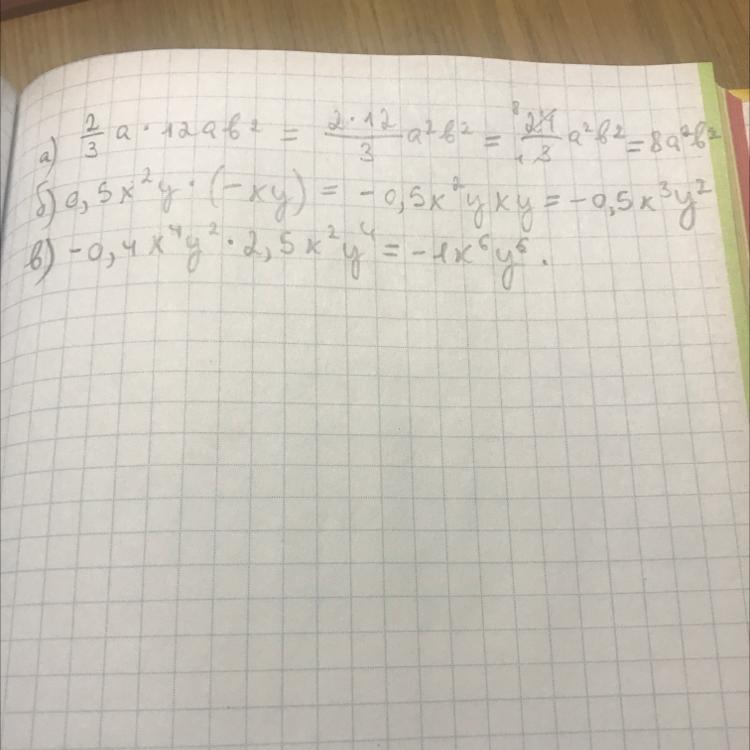 а) 2/3 a · 12ab² = (2·12)/3 a²b² = ⁸24/₁3 a²b² = 8a²b²
б) 0,5x²y · (-xy) = -0,5x²yxy = -0,5x³y²
в) -0,4x⁴y² · 2,5x²y⁴ = -1x⁶y⁶.